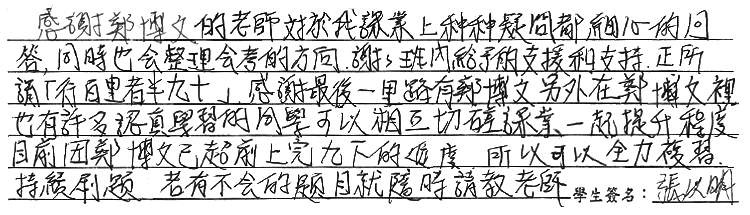 感謝鄭博文的老師對於我課業上種種疑問都細心的回
答,同時也会整理会考的方向.謝謝班內給予的支援和支持.正所
謂「行百里者半九十」感謝最後一里路有鄭博文另外在鄭博文裡
也有許多認真學習的同學可以相互切磋課業一起提升程度
目前因鄭博文已超前上完九下的進度 所以可以全力複習.
持續刷題 若有不会的題目就隨時請教老師 學生簽名:張以明